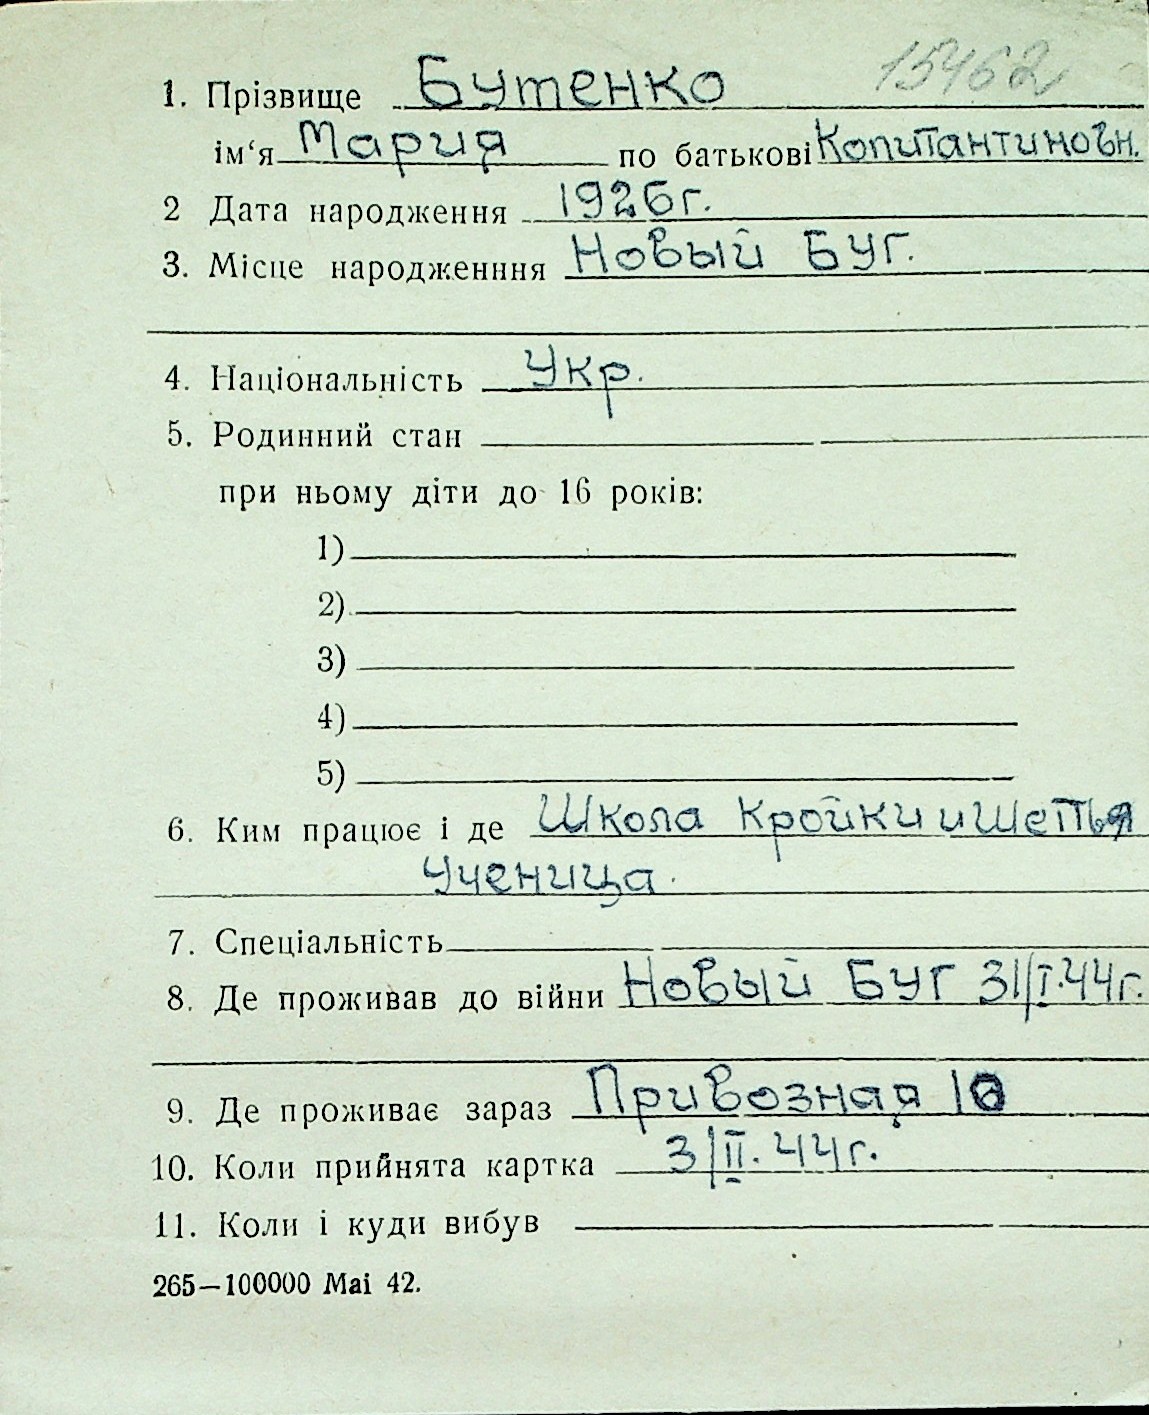 15462
1. Прізвище Бутенко
ім‘я Мария по батькові Копитантиновн.
2 Дата народження 1926г.
3. Місце народженння Новый Буг.
4. Національність Укр.
5. Родинний стан
при ньому діти до 16 років:
1)
2)
3)
4)
5)
6. Ким працює і де Школа Кройки и Шетья
Ученица.
7. Спеціальність
8. Де проживав до війни Новый Буг 31/I.44г.
9. Де проживає зараз Привозная 10
10. Коли прийнята картка 3/II.44г.
11. Коли і куди вибув
265—100000 Mai 42.